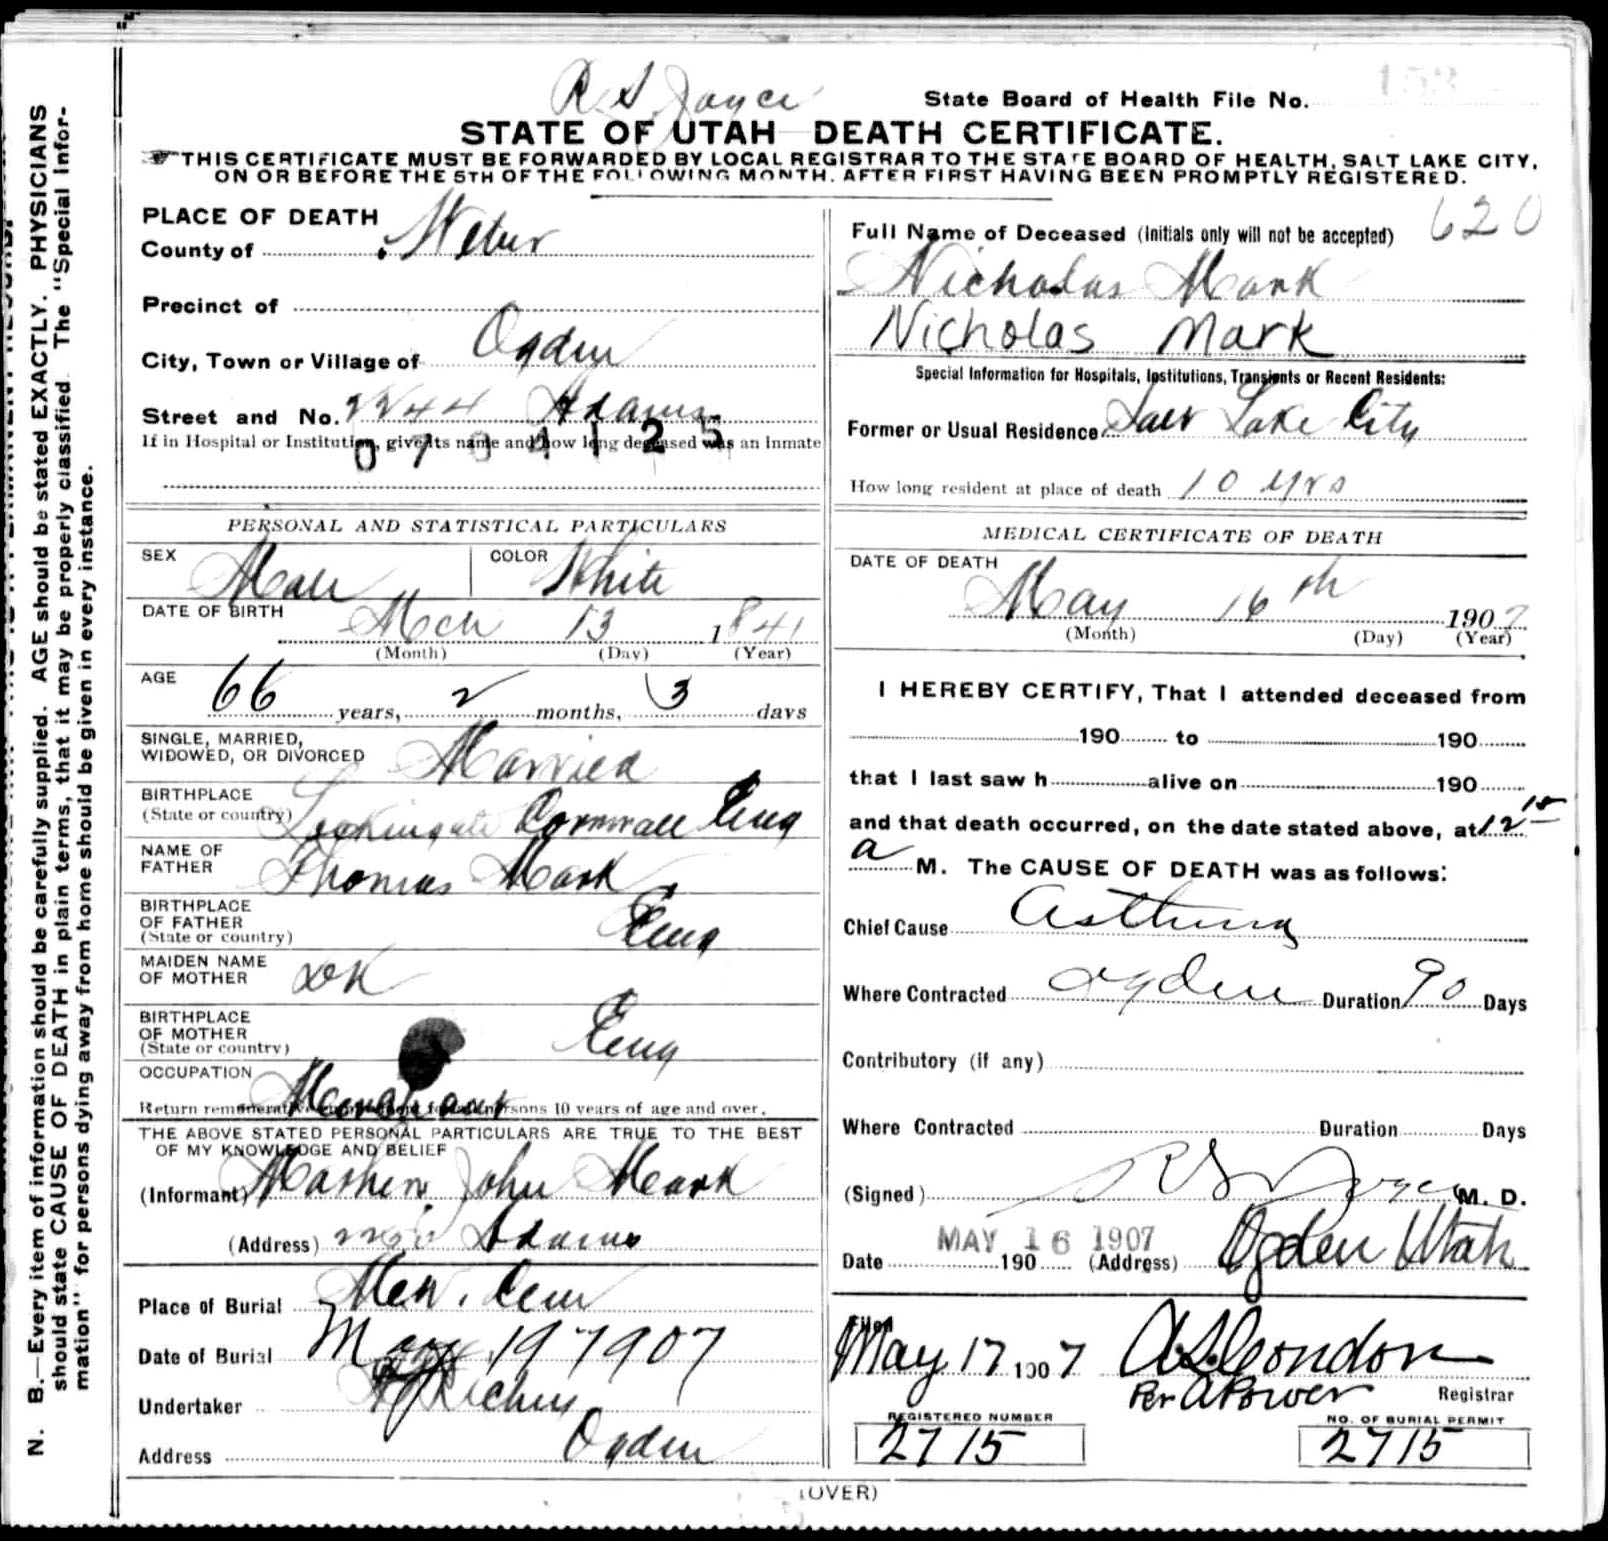 R S Joyce
State Board of Health File No. 153
STATE OF UTAH DEATH CERTIFICATE.
THIS CERTIFICATE MUST BE FORWARDED BY LOCAL REGISTRAR TO THE STATE BOARD OF HEALTH, SALT LAKE CITY,
ON OR BEFORE THE 5TH OF THE FOLLOWING MONTH, AFTER FIRST HAVING BEEN PROMPTLY REGISTERED.
N. B.—Every item of information should be carefully supplied. AGE should be stated EXACTLY. PHYSICIANS
should state CAUSE OF DEATH in plain terms, that it may be properly classified. The "Special Infor-
mation" for persons dying away from home should be given in every instance.
PLACE OF DEATH
County of Weber
Precinct of
City, Town or Village of Ogden
Street and No. 2244 Adams
If in Hospital or Institution, give its name and how long deceased was an Inmate
0704125
PERSONAL AND STATISTICAL PARTICULARS
SEX Male COLOR White
DATE OF BIRTH Mch 13 1841
(Month) (Day) (Year)
AGE 66 years, 2 months, 3 days
SINGLE, MARRIED,
WIDOWED, OR DIVORCED Married
BIRTHPLACE
(State or country) Cornwall Eng
NAME OF
FATHER Thomas Mark
BIRTHPLACE
OF FATHER Eng
(State or country)
MAIDEN NAME
OF MOTHER DK
BIRTHPLACE
OF MOTHER Eng
(State or country)
OCCUPATION Merchant
Return remunerative employment for all persons 10 years of age and over.
THE ABOVE STATED PERSONAL PARTICULARS ARE TRUE TO THE BEST
OF MY KNOWLEDGE AND BELIEF
(Informant) John Mark
(Address) Adams
Place of Burial Cem
Date of Burial May 19 1907
Undertaker
Address Ogden
620
Full Name of Deceased (Initials only will not be accepted)
Nicholas Mark
Nicholas Mark
Special Information for Hospitals, Institutions, Transients or Recent Residents:
Former or Usual Residence Salt Lake City
How long resident at place of death 10 yrs
MEDICAL CERTIFICATE OF DEATH
DATE OF DEATH
May 16th 1907
(Month) (Day) (Year)
I HEREBY CERTIFY, That I attended deceased from
190 to 190
that I last saw h alive on 190
and that death occurred, on the date stated above, at 12 15
a M. The CAUSE OF DEATH was as follows:
Chief Cause Asthma
Where Contracted Ogden Duration 90 Days
Contributory (if any)
Where Contracted Duration Days
(Signed) R S Joyce M. D.
Date MAY 16 1907 190 (Address) Ogden Utah
Filed
May 17 1907 A.S. Condon
Per A Power Registrar
REGISTERED NUMBER
2715
NO. OF BURIAL PERMIT
2715
(OVER)